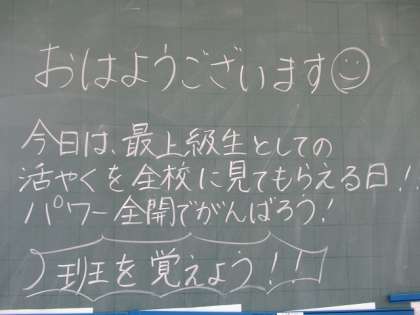 おはようございます☺
今日は、最上級生としての
活やくを全校に見てもらえる日!
パワー全開でがんばろう!
班を覚えよう!!